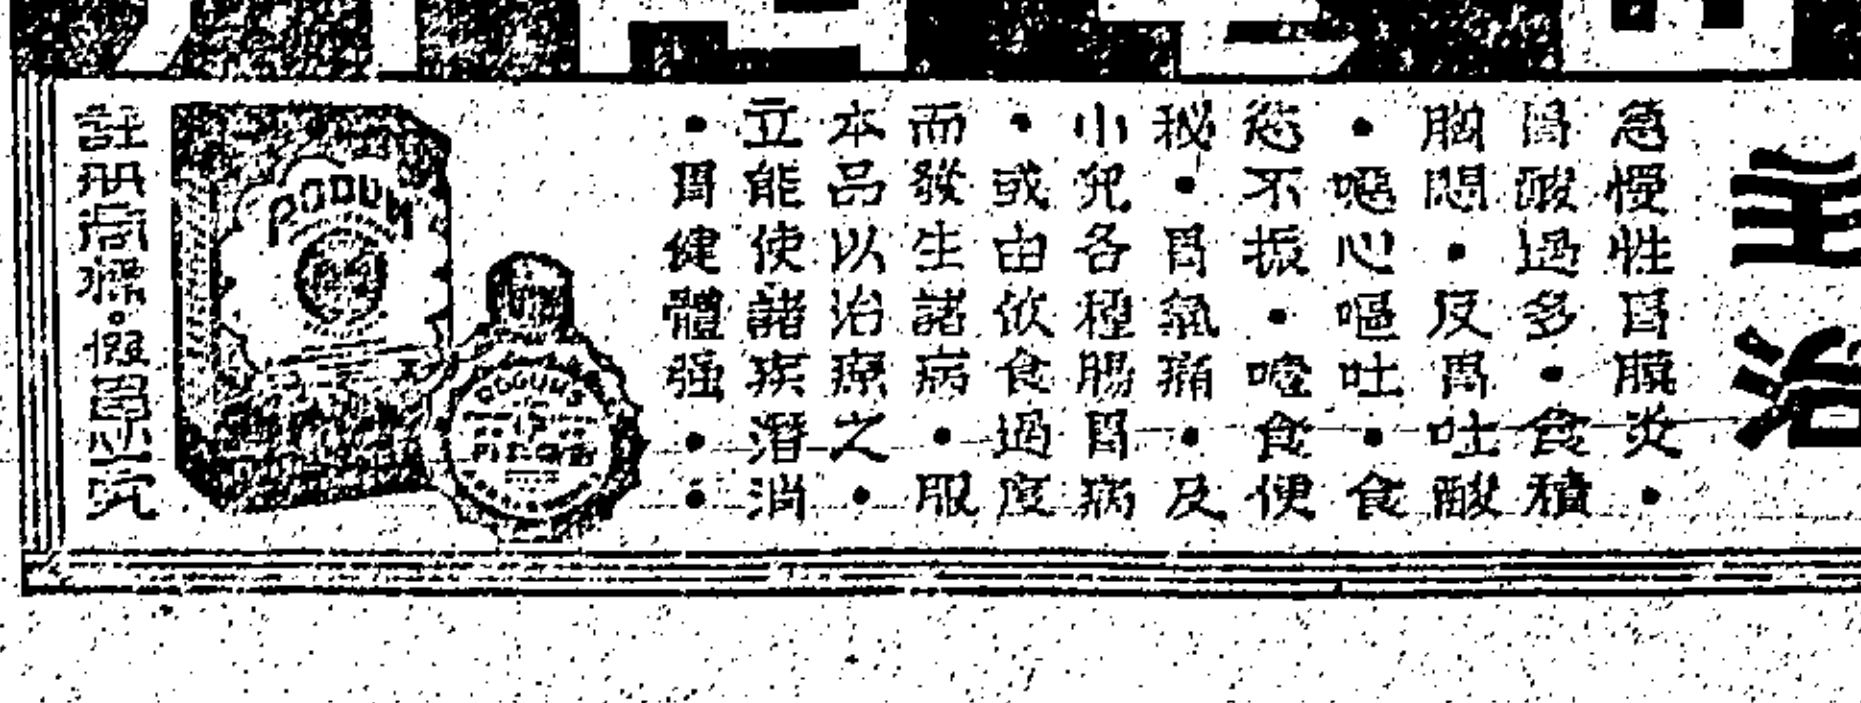 主治
急慢性胃臟炎•
胃酸過多•食積
胸悶•反胃吐酸
•噁心嘔吐•食
慾不振•噎食便
秘•胃氣痛•及
小兒各種腸胃病
•或由飲食過度
而發生諸病•服
本品以治療之•
立能使諸疾潛消
•胃健體强••
註册商標。假冒必究